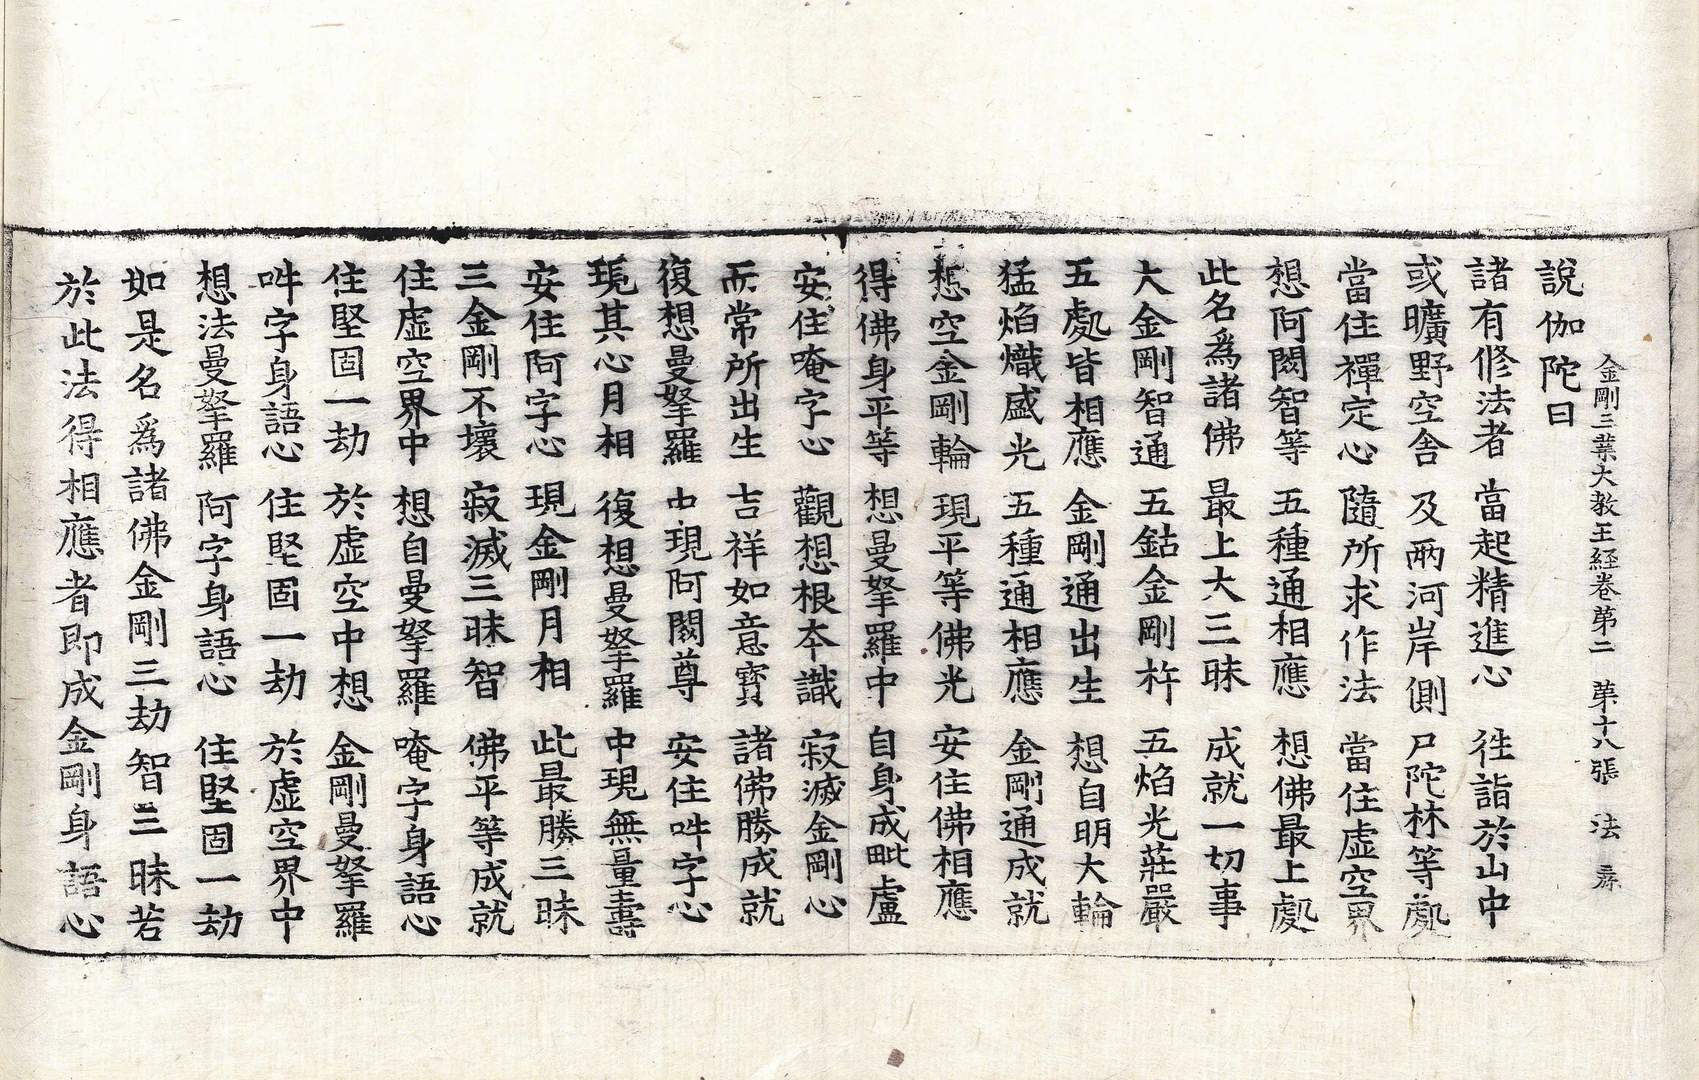 金剛三業大教王経卷第二　第十八張　法　㝷
說伽陀曰
諸有修法者　當起精進心　徃詣於山中
或曠野空舍　及兩河岸側　尸陀林等處
當住禪定心　隨所求作法　當住虛空界
想阿閦智等　五種通相應　想佛最上處
此名爲諸佛　最上大三昧　成就一切事
大金剛智通　五鈷金剛杵　五焰光莊嚴
五處皆相應　金剛通出生　想自明大輪
猛焰熾盛光　五種通相應　金剛通成就
想空金剛輪　現平等佛光　安住佛相應
得佛身平等　想曼拏羅中　自身成毗盧
安住唵字心　觀想根本識　寂滅金剛心
而常所出生　吉祥如意寶　諸佛勝成就
復想曼拏羅　中現阿閦尊　安住吽字心
現其心月相　復想曼拏羅　中現無量壽
安住阿字心　現金剛月相　此最勝三昧
三金剛不壞　寂滅三昧智　佛平等成就
住虛空界中　想自曼拏羅　唵字身語心
住堅固一劫　於虛空中想　金剛曼拏羅
吽字身語心　住堅固一劫　於虛空界中
想法曼拏羅　阿字身語心　住堅固一劫
如是名爲諸佛金剛三劫智三昧若
於此法得相應者即成金剛身語心